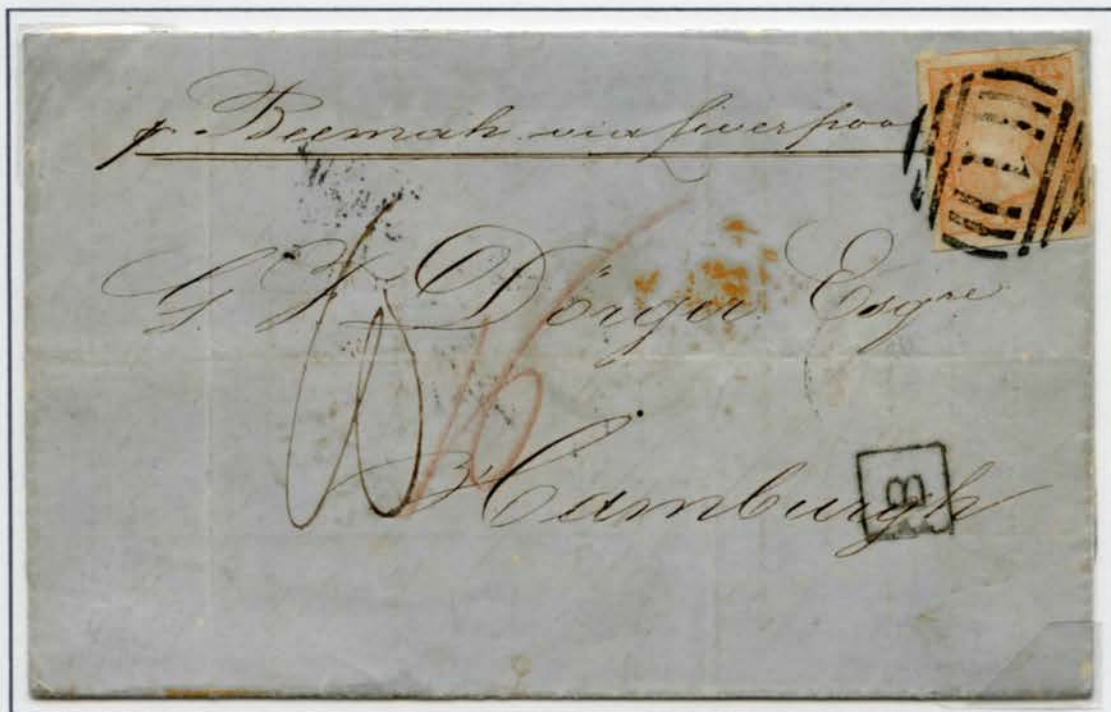 p. Beemah via Liverpool
G. F. Dörger Esqre
Hamburgh
16